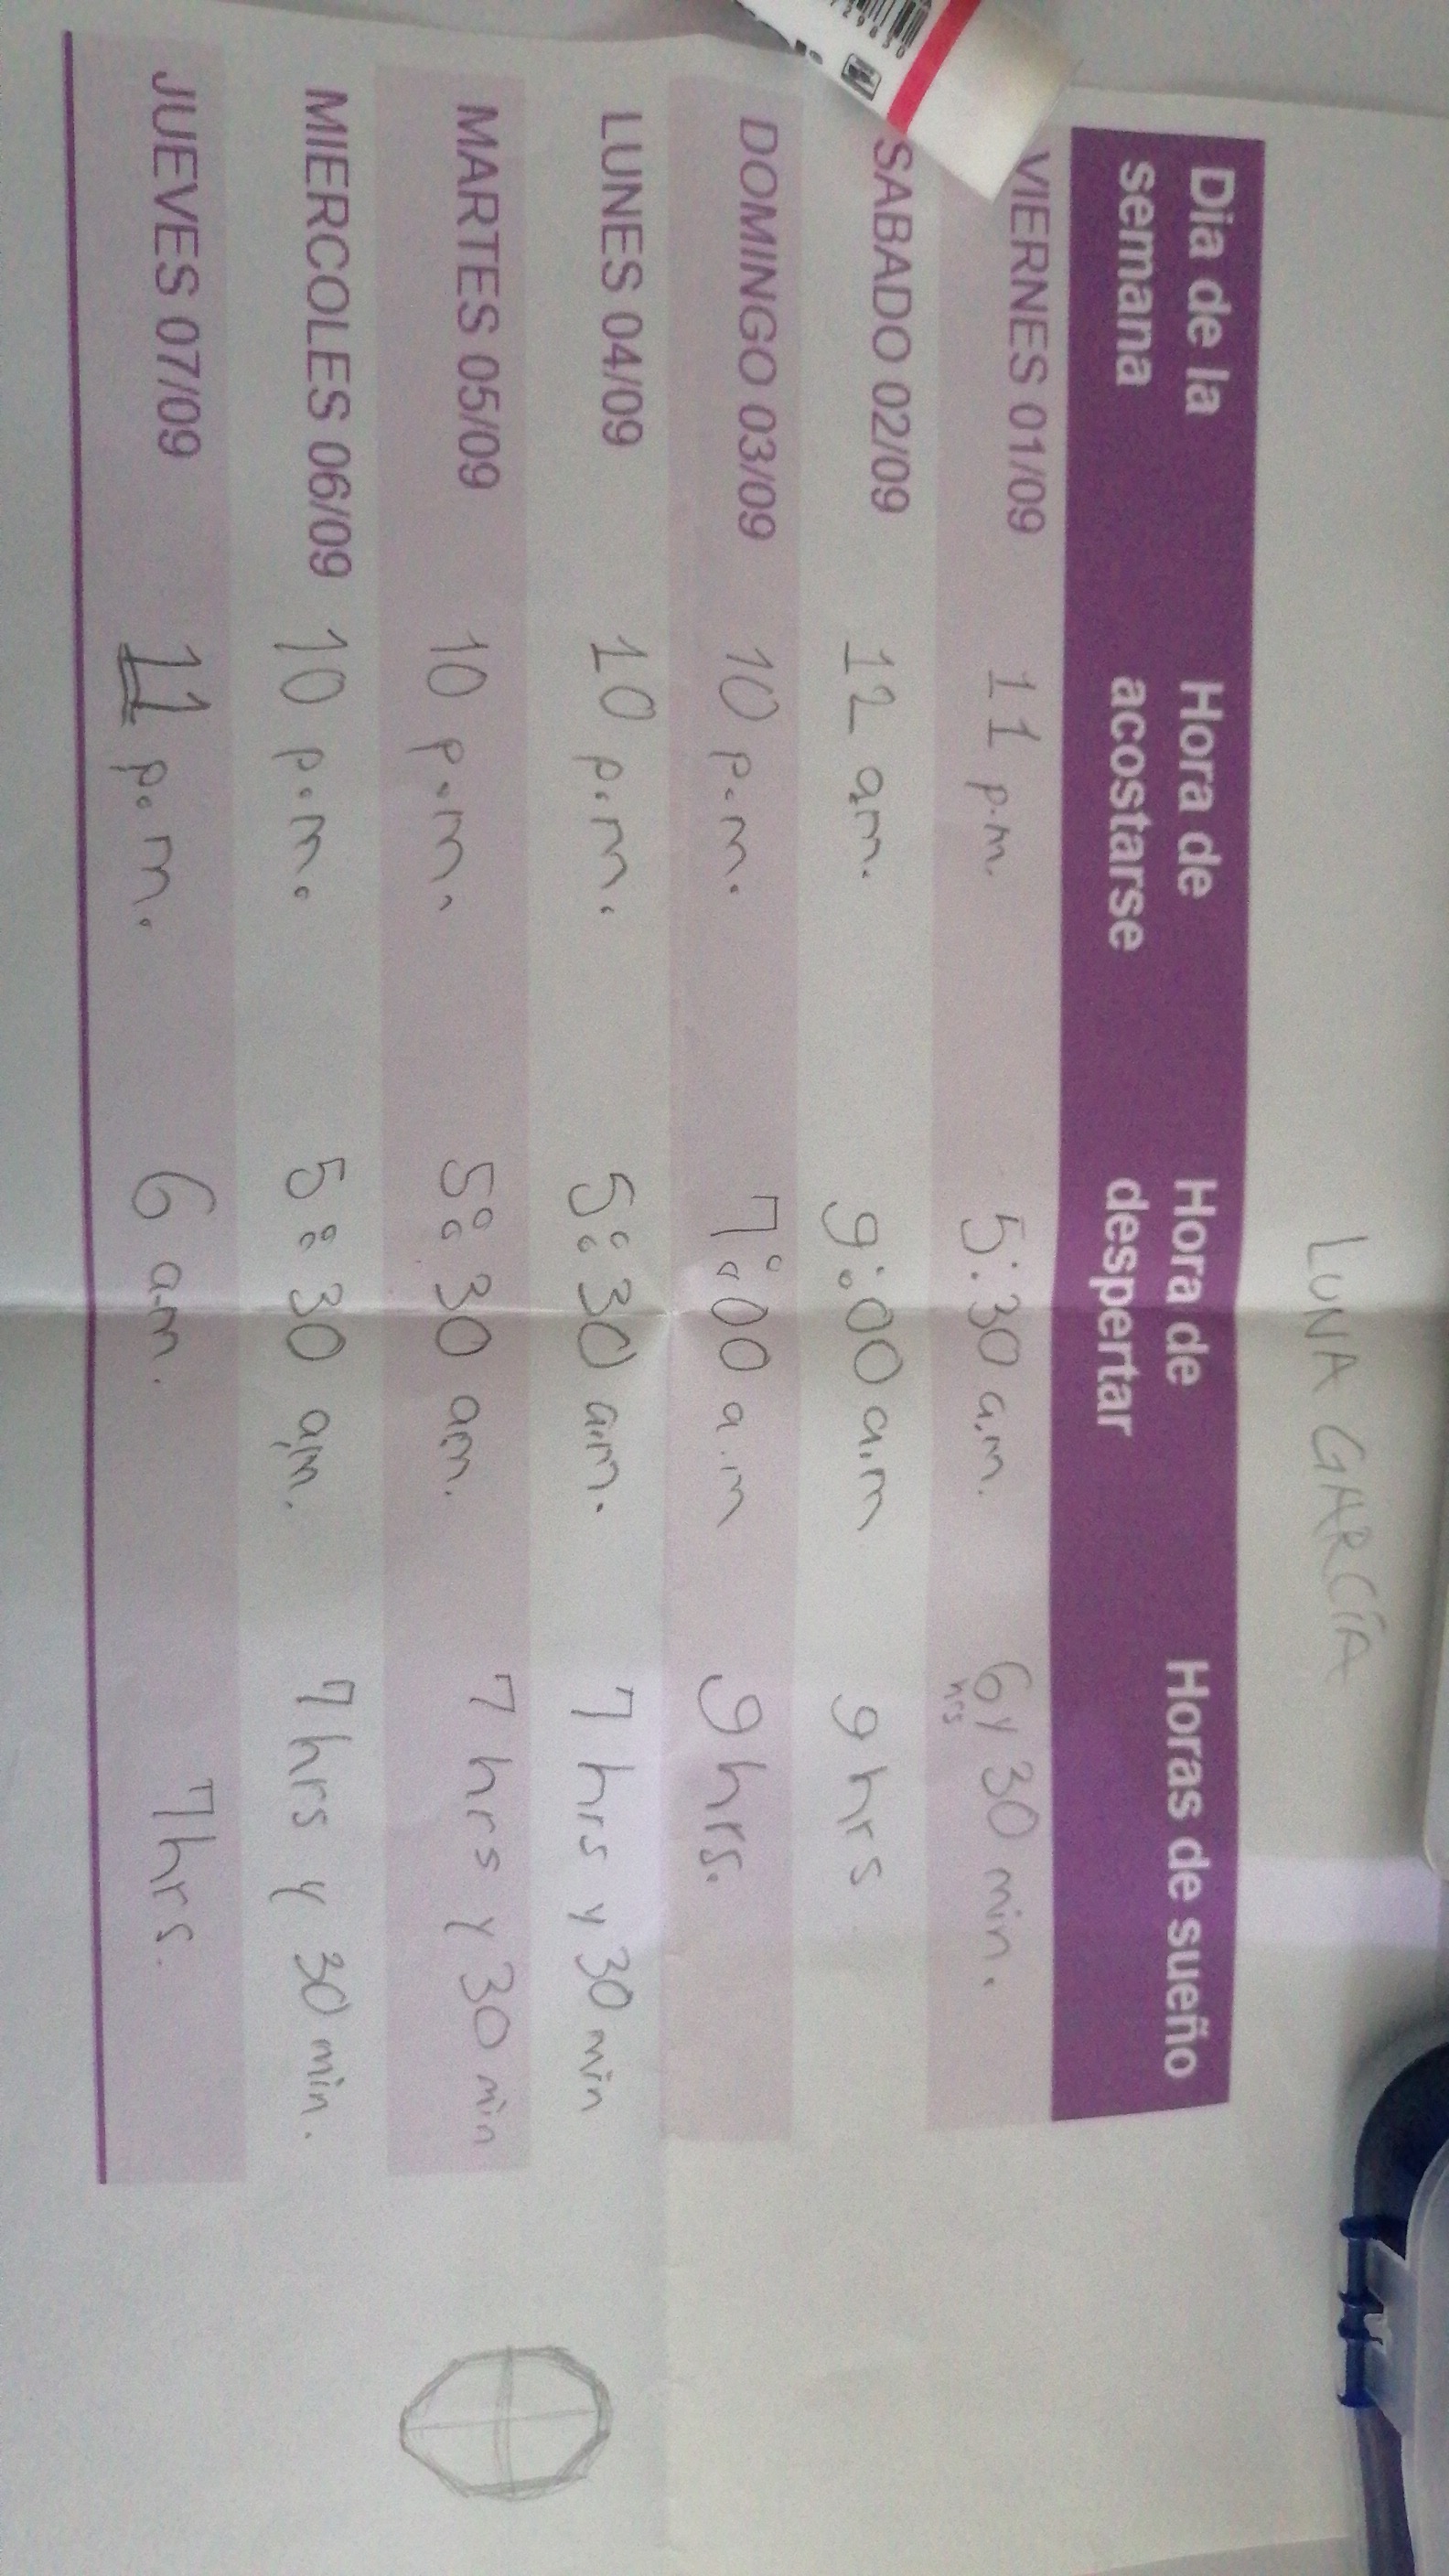 LUNA GARCÍA
Dia de la semana Hora de acostarse Hora de despertar Horas de sueño
VIERNES 01/09 11 p.m. 5:30 a.m. 6 y 30 min.
hrs
SABADO 02/09 12 am. 9:00 a.m 9 hrs
DOMINGO 03/09 10 p.m. 7:00 a.m 9 hrs.
LUNES 04/09 10 p.m. 5:30 a.m. 7 hrs y 30 min
MARTES 05/09 10 p.m. 5:30 am. 7 hrs y 30 min
MIERCOLES 06/09 10 p.m. 5:30 a.m. 7 hrs y 30 min.
JUEVES 07/09 11 p.m. 6 a.m. 7 hrs.